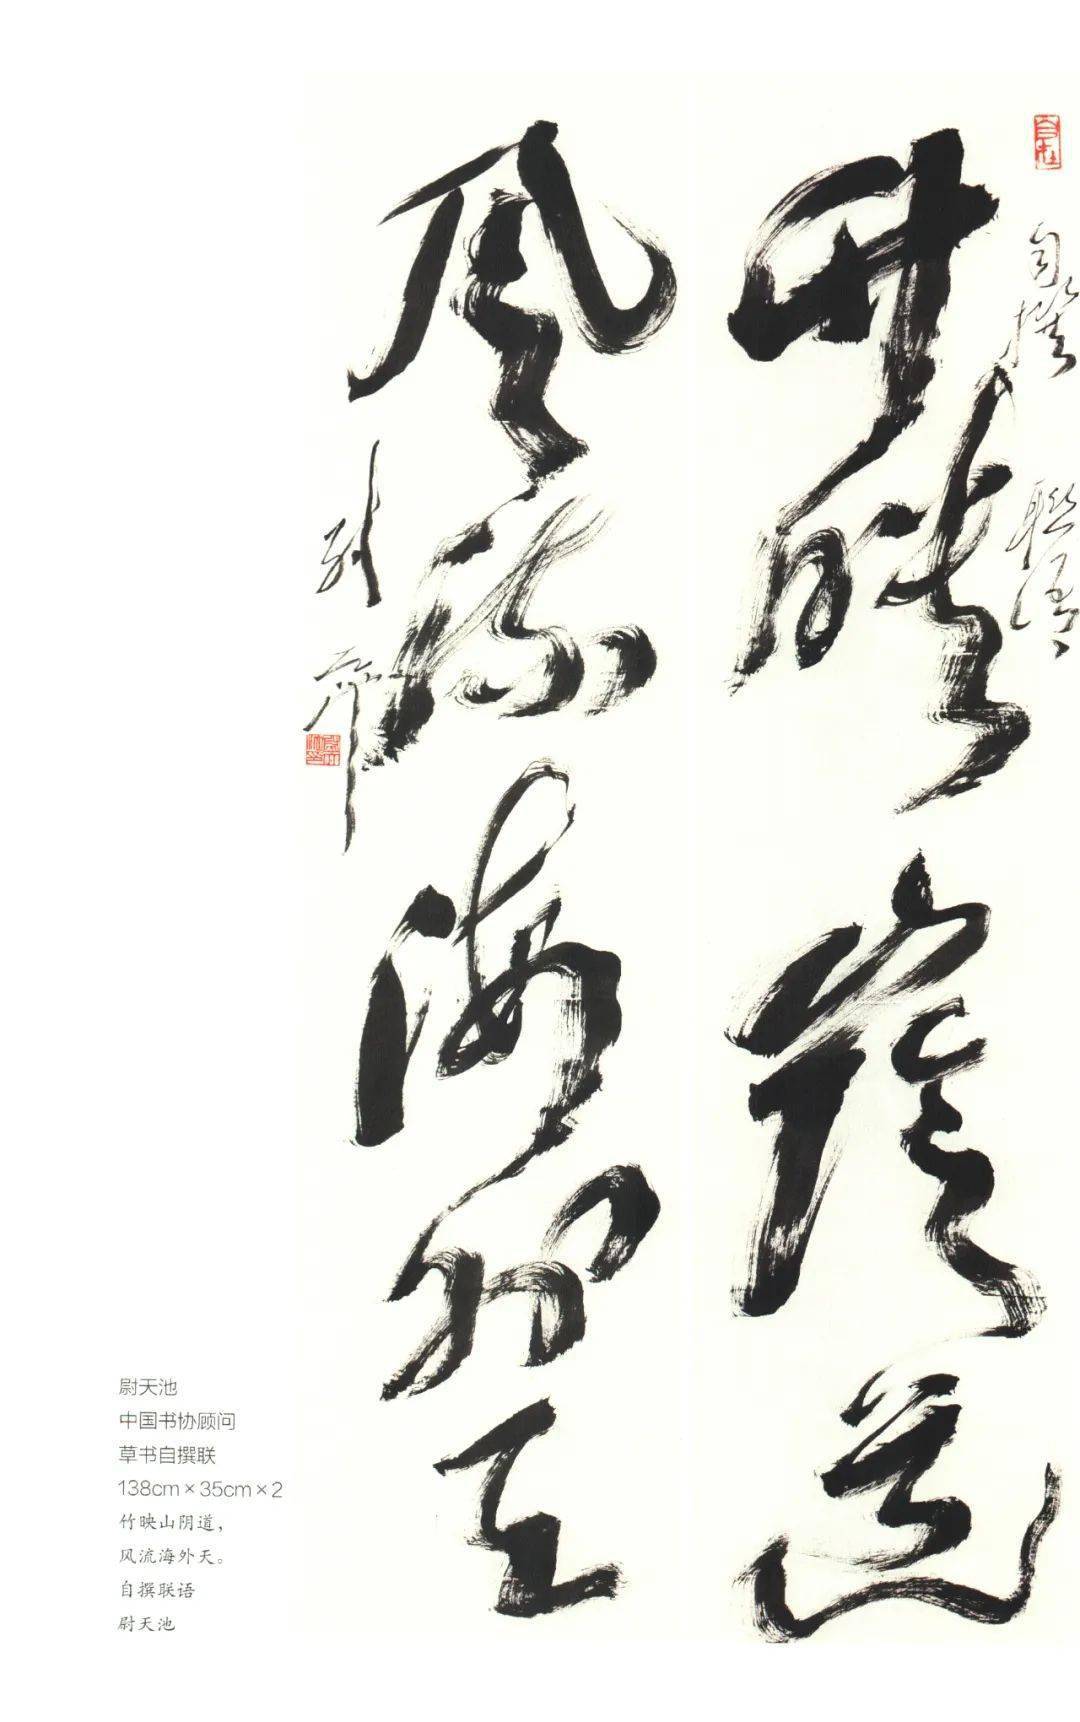 自撰聯語
竹映山陰道
風流海外天
尉天池
中国书协顾问
草书自撰联
138cm×35cm×2
竹映山阴道，
风流海外天。
自撰联语
尉天池